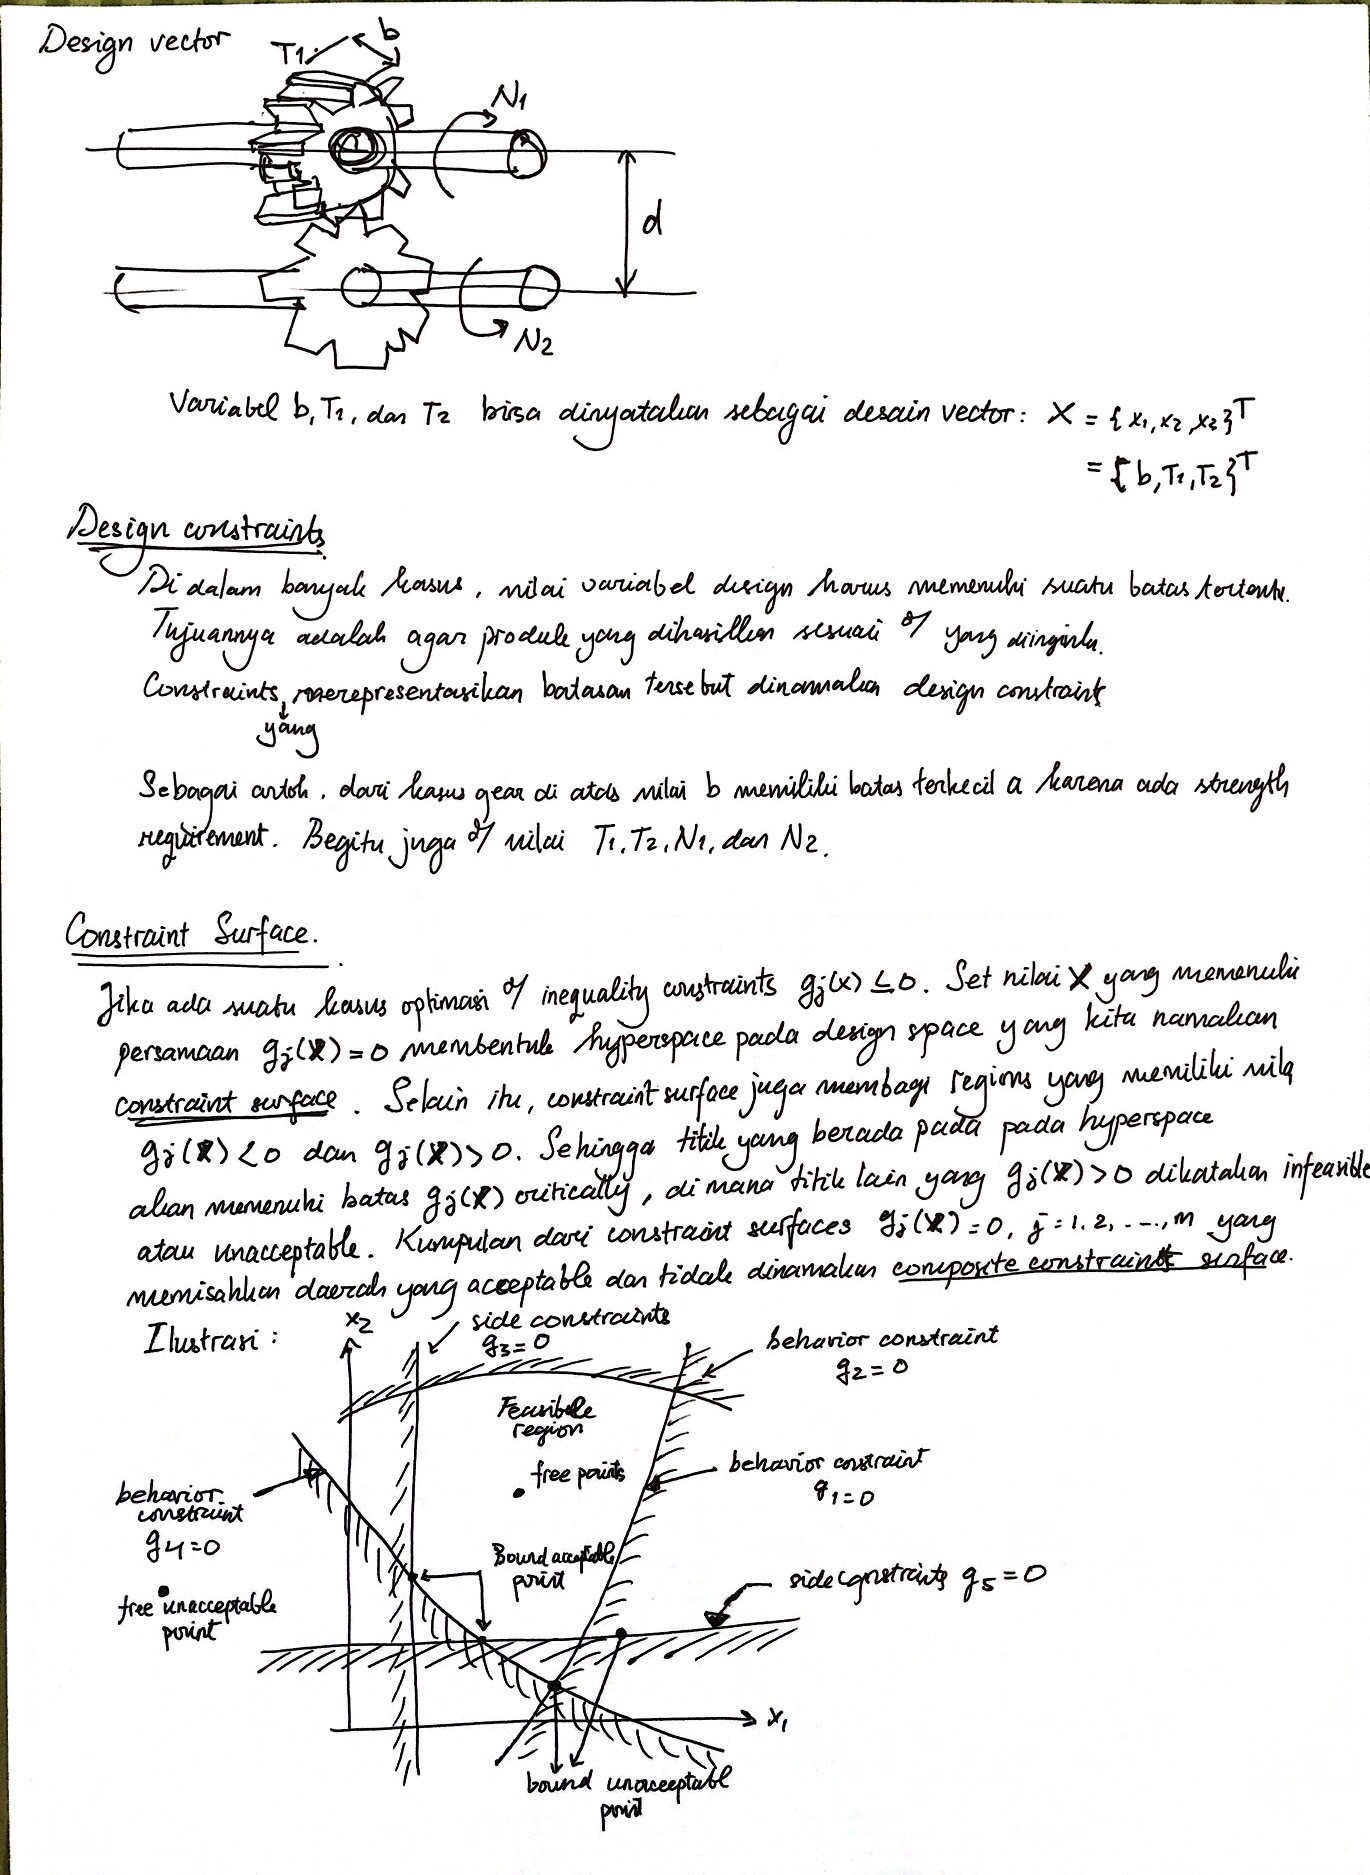 Design vector
T1
b
N1
d
N2
Variabel b, T1, dan T2 bisa dinyatakan sebagai desain vector: X = {x1, x2, x3}T
= {b, T1, T2}T
Design constraints
Di dalam banyak kasus, nilai variabel design harus memenuhi suatu batas tertentu.
Tujuannya adalah agar produk yang dihasilkan sesuai yang diinginka.
Constraints merepresentasikan batasan tersebut dinamakan design constraints
yang
Sebagai contoh, dari kasus gear di atas nilai b memiliki batas terkecil a karena ada strength
requirement. Begitu juga nilai T1, T2, N1, dan N2.
Constraint Surface.
Jika ada suatu kasus optimasi inequality constraints gj(x) ≤ 0. Set nilai X yang memenuhi
persamaan gj(X) = 0 membentuk hyperspace pada design space yang kita namakan
constraint surface. Selain itu, constraint surface juga membagi regions yang memiliki nila
gj(X) < 0 dan gj(X) > 0. Sehingga titik yang berada pada pada hyperspace
akan memenuhi batas gj(X) critically, di mana titik lain yang gj(X) > 0 dikatakan infeasible
atau unacceptable. Kumpulan dari constraint surfaces gj(X) = 0, j = 1, 2, ..., m yang
memisahkan daerah yang acceptable dan tidak dinamakan composite constraint surface.
Ilustrasi :
x2
side constraints
g3 = 0
behavior constraint
g2 = 0
Feasible
region
free points
behavior constraint
g1 = 0
behavior
constraint
g4 = 0
Bound acceptable
point
side constraints g5 = 0
free unacceptable
point
x1
bound unacceptable
point